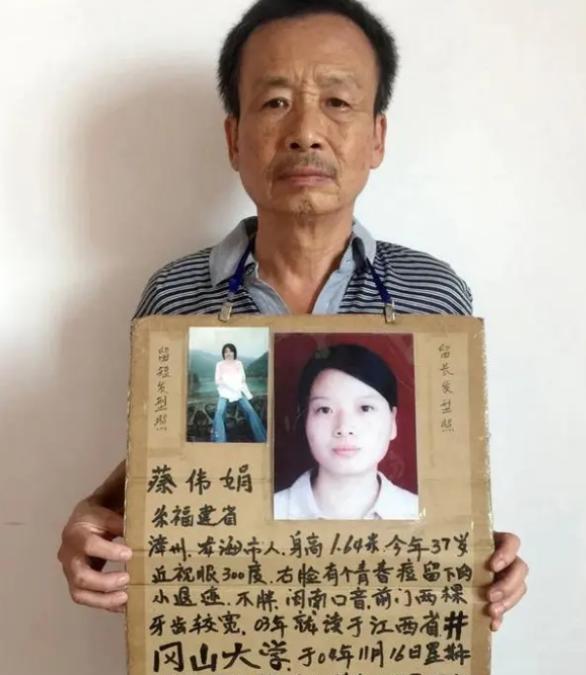 留短发型照
留长发型照
蔡伟娟
系福建省
漳州.龙海市人.身高1.64米.今年37岁
近视眼300度.右脸有个青春痘留下的
小退迹.不胖.闽南口音.前门两棵
牙齿较宽.03年就读于江西省井
冈山大学.于04年11月16日星期